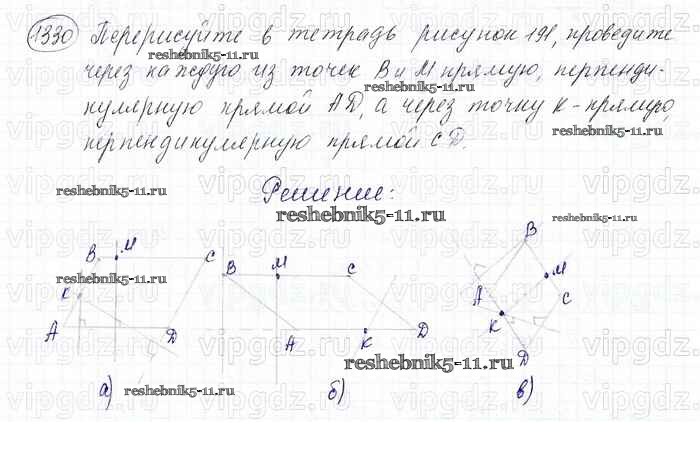 1330 Перерисуйте в тетрадь рисунок 191, проведите
reshebnik5-11.ru
через каждую из точек В и М прямую, перпенди-
reshebnik5-11.ru
кулярную прямой АД, а через точку К - прямую,
reshebnik5-11.ru
перпендикулярную прямой СД.
reshebnik5-11.ru
Решение:
reshebnik5-11.ru
reshebnik5-11.ru
В М С
К
А Д
а)
reshebnik5-11.ru
reshebnik5-11.ru
В М С
А К Д
б)
reshebnik5-11.ru
В
М
А С
К
Д
в)
vipgdz.ru